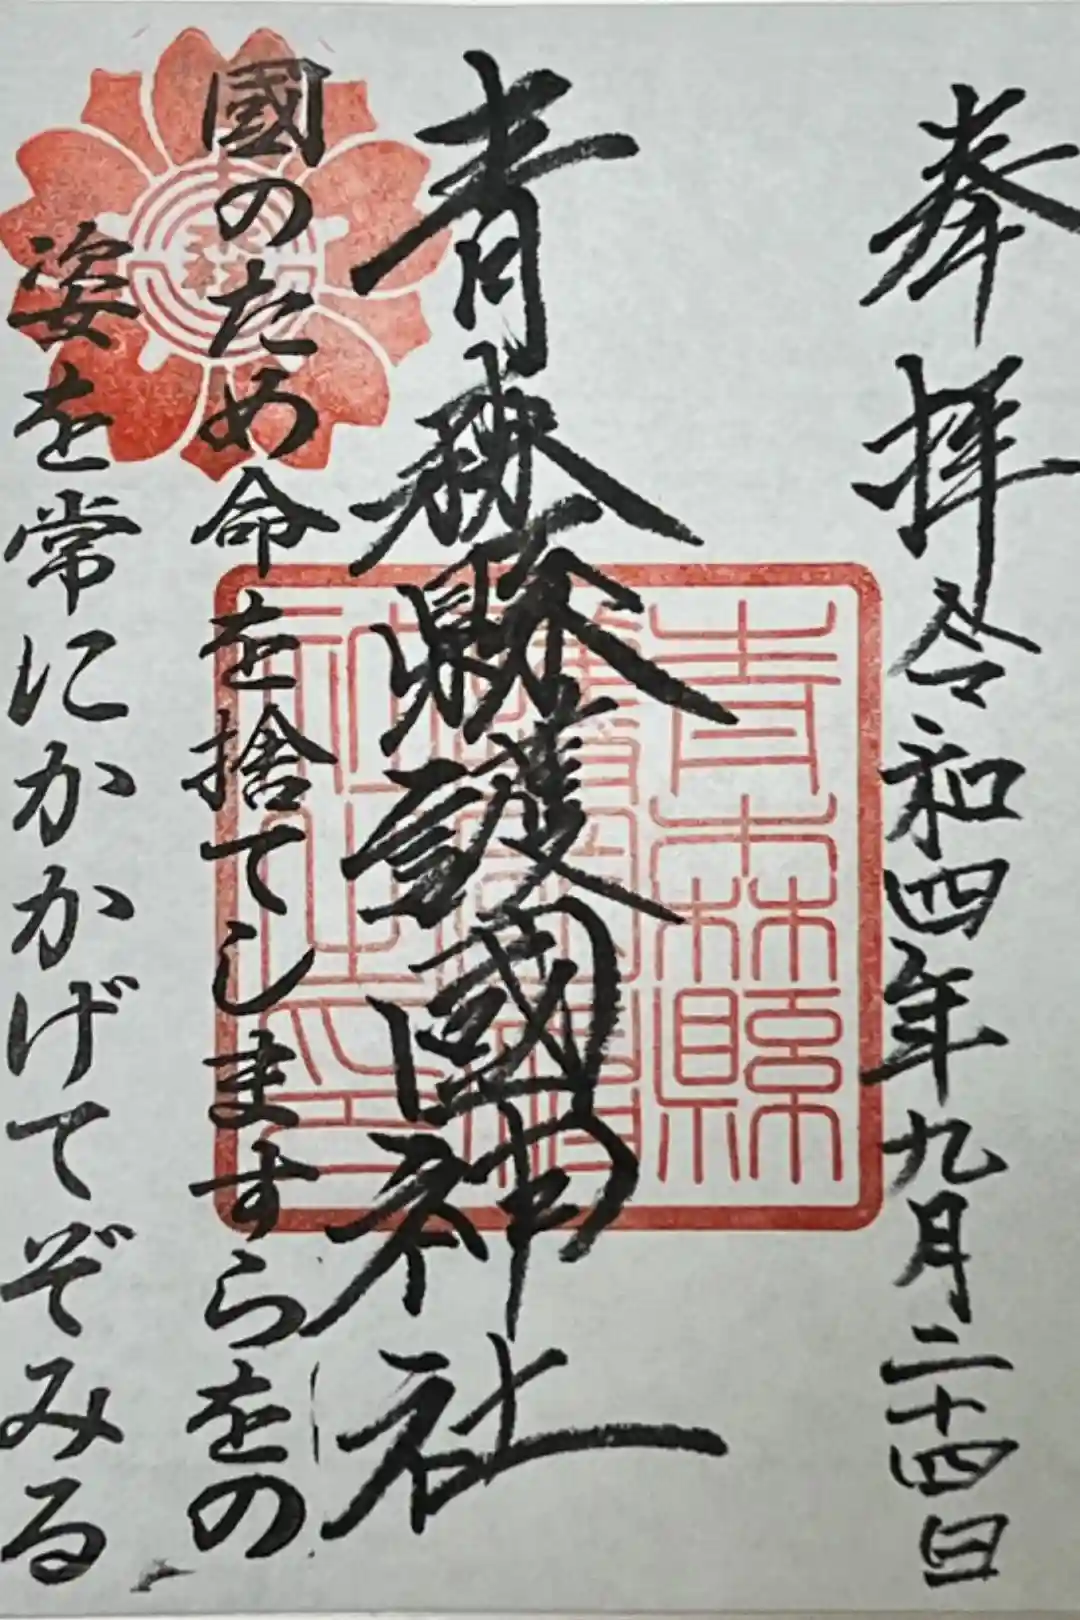 奉拝 令和四年九月二十四日
青森縣護國神社
國のため命を捨てしますらをの
姿を常にかかげてぞみる
青森縣
護國神社